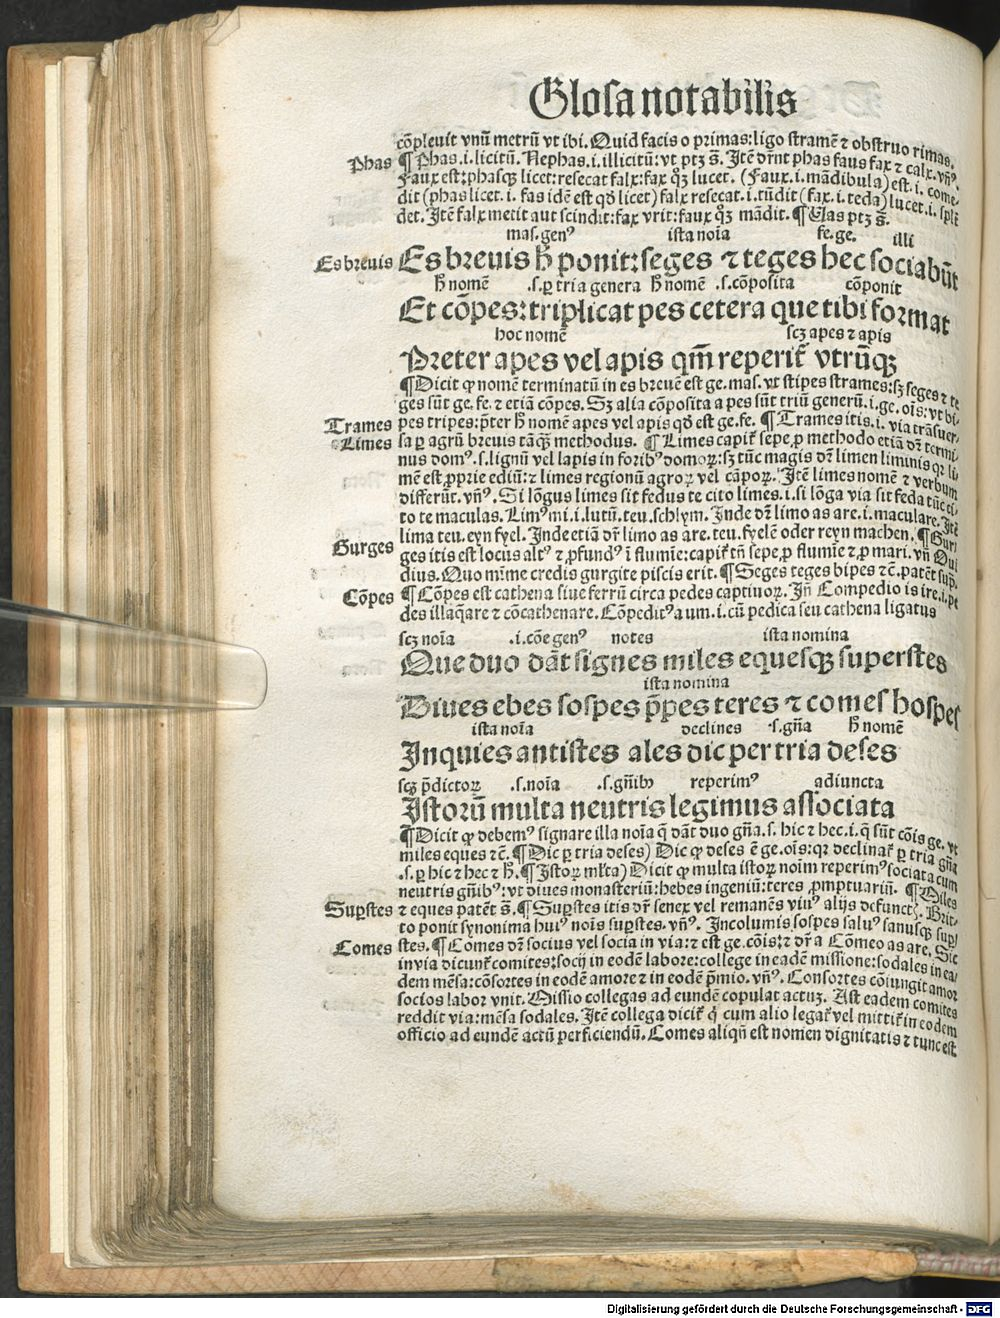 Glosa notabilis
cōpleuit vnū metrū vt ibi. Quid facis o primas: ligo stramē ⁊ obstruo rimas.
Phas ¶ Phas .i. licitū. Nephas .i. illicitū: vt ptꝫ s̄. Itē dr̄nt phas faus fax ⁊ calx. vñ⁹.
Faux est: phasqꝫ licet: resecat falx: fax qꝫ lucet. (Faux .i. mādibula) est .i. come
dit (phas licet .i. fas idē est qd̄ licet) falx resecat .i. tūdit (fax .i. teda) lucet .i. splē
det. Itē falx metit aut scindit: fax vrit: faux qꝫ mādit. ¶ Uas ptꝫ s̄.
mas. gen⁹ ista noīa fe. ge. illi
Es breuis Es breuis h̄ ponit: seges ⁊ teges hec sociabūt
h̄ nomē .s. ꝑ tria genera h̄ nomē .s. cōposita cōponit
Et cōpes: triplicat pes cetera que tibi format
hoc nomē scꝫ apes ⁊ apis
Preter apes vel apis qm̄ reperit̄ vtrūqꝫ
¶ Dicit ꝙ nomē terminatū in es breuē est ge. mas. vt stipes strames: sꝫ seges ⁊ te
ges sūt ge. fe. ⁊ etiā cōpes. Sꝫ alia cōposita a pes sūt triū generū .i. ge. oīs: vt bi
Trames pes tripes: p̄ter h̄ nomē apes vel apis qd̄ est ge. fe. ¶ Trames itis .i. via trāsuer
Limes sa ꝑ agrū breuis tāqꝫ methodus. ¶ Limes capit̄ sepe ꝓ methodo etiā dr̄ termi
nus dom⁹ .s. lignū vel lapis in forib⁹ domoꝝ: sꝫ tūc magis dr̄ limen liminis qꝛ li
mē est ꝓprie ediū: ⁊ limes regionū agroꝝ vel cāpoꝝ. Itē limes nomē ⁊ verbum
differūt. vñ⁹. Si lōgus limes sit fedus te cito limes .i. si lōga via sit feda tūc ci
to te maculas. Lim⁹ mi .i. lutū. teu. schlym. Inde dr̄ limo as are .i. maculare. Itē
lima teu. eyn fyel. Inde etiā dr̄ limo as are. teu. fyelē oder reyn machen. ¶ Gur
Gurges ges itis est locus alt⁹ ⁊ ꝓfund⁹ ī flumīe: capit̄ tn̄ sepe ꝓ flumīe ⁊ ꝓ mari. vñ Oui
dius. Quo mīme credis gurgite piscis erit. ¶ Seges teges bipes ⁊c̄. patēt sup̄.
Cōpes ¶ Cōpes est cathena siue ferrū circa pedes captiuoꝝ. Inꝰ Compedio is ire .i. pe
des illaq̄are ⁊ cōcathenare. Cōpedit⁹ a um .i. cū pedica seu cathena ligatus
scꝫ noīa .i. cōe gen⁹ notes ista nomina
Que duo dāt signes miles equesqꝫ superstes
ista nomina
Diues ebes sospes p̄pes teres ⁊ comes hospes
ista noīa declines .s. gn̄a h̄ nomē
Inquies antistes ales dic per tria deses
scꝫ p̄dictoꝝ .s. noīa .s. gn̄ibꝫ reperim⁹ adiuncta
Istorū multa neutris legimus associata
¶ Dicit ꝙ debem⁹ signare illa noīa q̄ dāt duo gn̄a .s. hic ⁊ hec .i. q̄ sūt cōis ge. vt
miles eques ⁊c̄. ¶ Dic ꝑ tria deses) Dic ꝙ deses ē ge. oīs: qꝛ declinat̄ ꝑ tria gn̄a
.s. ꝑ hic ⁊ hec ⁊ h̄. ¶ Istoꝝ ml̄ta) Dicit ꝙ multa istoꝝ noīm reperim⁹ sociata cum
neutris gn̄ib⁹: vt diues monasteriū: hebes ingeniū: teres ꝓmptuariū. ¶ Miles
Suꝑstes ⁊ eques patēt s̄. ¶ Suꝑstes itis dr̄ senex vel remanēs viu⁹ alijs defunctꝭ. Brit
to ponit synonima hui⁹ noīs suꝑstes. vñ⁹. Incolumis sospes salu⁹ sanusqꝫ suꝑ
Comes stes. ¶ Comes dr̄ socius vel socia in via: ⁊ est ge. cōis: ⁊ dr̄ a Cōmeo as are. Sic
in via dicunt̄ comites: socij in eodē labore: college in eadē missione: sodales in ea
dem mēsa: cōsortes in eodē amore ⁊ in eodē p̄mio. vñ⁹. Consortes cōiungit amor
socios labor vnit. Missio collegas ad eundē copulat actuꝫ. Ast eadem comites
reddit via: mēsa sodales. Itē collega dicit̄ q̄ cum alio legat̄ vel mittit̄ in eodem
officio ad eundē actū perficiendū. Comes aliqn̄ est nomen dignitatis ⁊ tunc est
Digitalisierung gefördert durch die Deutsche Forschungsgemeinschaft - DFG